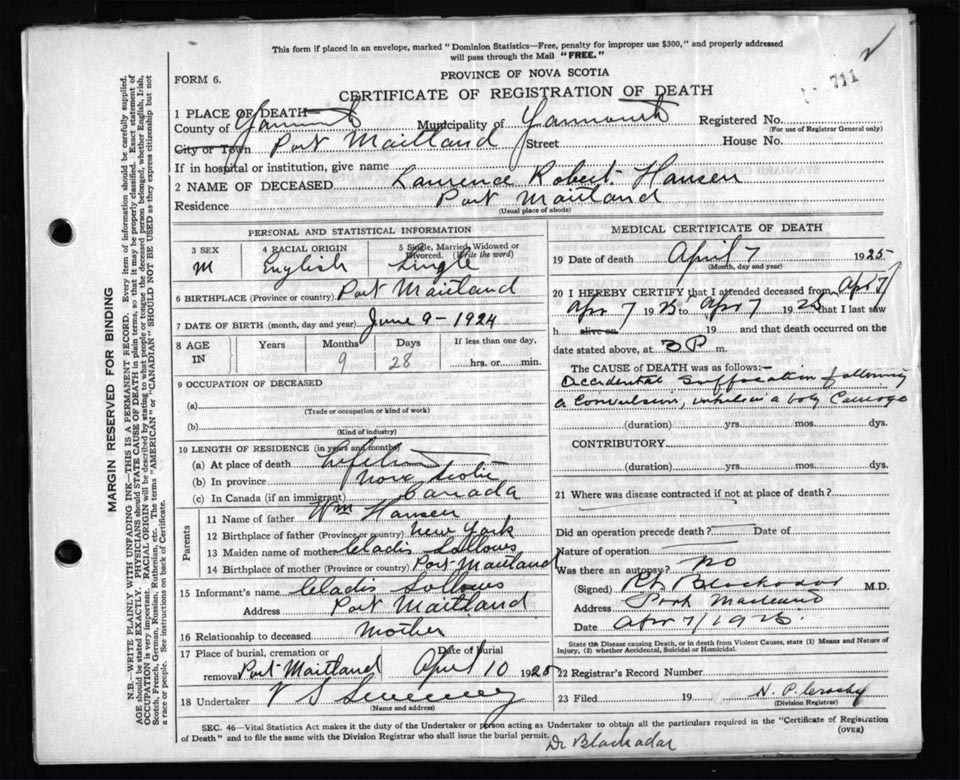 This form if placed in an envelope, marked "Dominion Statistics—Free, penalty for improper use $300," and properly addressed
will pass through the Mail "FREE."
711
FORM 6.
PROVINCE OF NOVA SCOTIA
CERTIFICATE OF REGISTRATION OF DEATH
1 PLACE OF DEATH
County of Yarmouth Municipality of Yarmouth Registered No.
(For use of Registrar General only)
City or Town Port Maitland Street House No.
If in hospital or institution, give name
2 NAME OF DECEASED Laurence Robert Hansen
Residence Port Maitland
(Usual place of abode)
PERSONAL AND STATISTICAL INFORMATION
3 SEX 4 RACIAL ORIGIN 5 Single, Married, Widowed or Divorced. (Write the word)
M English Single
6 BIRTHPLACE (Province or country) Port Maitland
7 DATE OF BIRTH (month, day and year) June 9 - 1924
8 AGE IN Years Months Days If less than one day,
9 28 hrs. or min.
9 OCCUPATION OF DECEASED
(a)
(Trade or occupation or kind of work)
(b)
(Kind of industry)
10 LENGTH OF RESIDENCE (in years and months)
(a) At place of death Lifetime
(b) In province Nova Scotia
(c) In Canada (if an immigrant) Canada
Parents
11 Name of father Wm Hansen
12 Birthplace of father (Province or country) New York
13 Maiden name of mother Gladis Sollows
14 Birthplace of mother (Province or country) Port Maitland
15 Informant's name Gladis Sollows
Address Port Maitland
16 Relationship to deceased Mother
17 Place of burial, cremation or removal Port Maitland Date of burial April 10 1925
18 Undertaker V S Sweeney
(Name and address)
MEDICAL CERTIFICATE OF DEATH
19 Date of death April 7 1925
(Month, day and year)
20 I HEREBY CERTIFY that I attended deceased from Apr 7
Apr 7 1925 to Apr 7 1925 that I last saw
h alive on 19 and that death occurred on
date stated above, at 3 P m.
The CAUSE of DEATH was as follows:—
Accidental suffocation following
a convulsion, in a baby carriage
(duration) yrs. mos. dys.
CONTRIBUTORY
(duration) yrs. mos. dys.
21 Where was disease contracted if not at place of death?
Did an operation precede death? Date of
Nature of operation
Was there an autopsy? no
(Signed) Blackadar M.D.
Address Port Maitland
Date Apr 7/1925.
State the Disease causing Death, or in death from Violent Causes, state (1) Means and Nature of
Injury, (2) whether Accidental, Suicidal or Homicidal.
22 Registrar's Record Number
23 Filed 19 N. P. Crosby
(Division Registrar)
SEC. 46—Vital Statistics Act makes it the duty of the Undertaker or person acting as Undertaker to obtain all the particulars required in the "Certificate of Registration
of Death" and to file the same with the Division Registrar who shall issue the burial permit.
(OVER)
Dr Blackadar
MARGIN RESERVED FOR BINDING
N.B.—WRITE PLAINLY WITH UNFADING INK—THIS IS A PERMANENT RECORD. Every item of information should be carefully supplied.
AGE should be stated EXACTLY. PHYSICIANS should STATE CAUSE OF DEATH in plain terms, so that it may be properly classified. Exact statement of
OCCUPATION is very important. RACIAL ORIGIN will be described by stating to what people or tongue the deceased person belonged, whether English, Irish,
Scotch, French, German, Russian, Ruthenian, etc. The terms "AMERICAN" or "CANADIAN" SHOULD NOT BE USED as they express citizenship but not
a race or people. See instructions on back of Certificate.